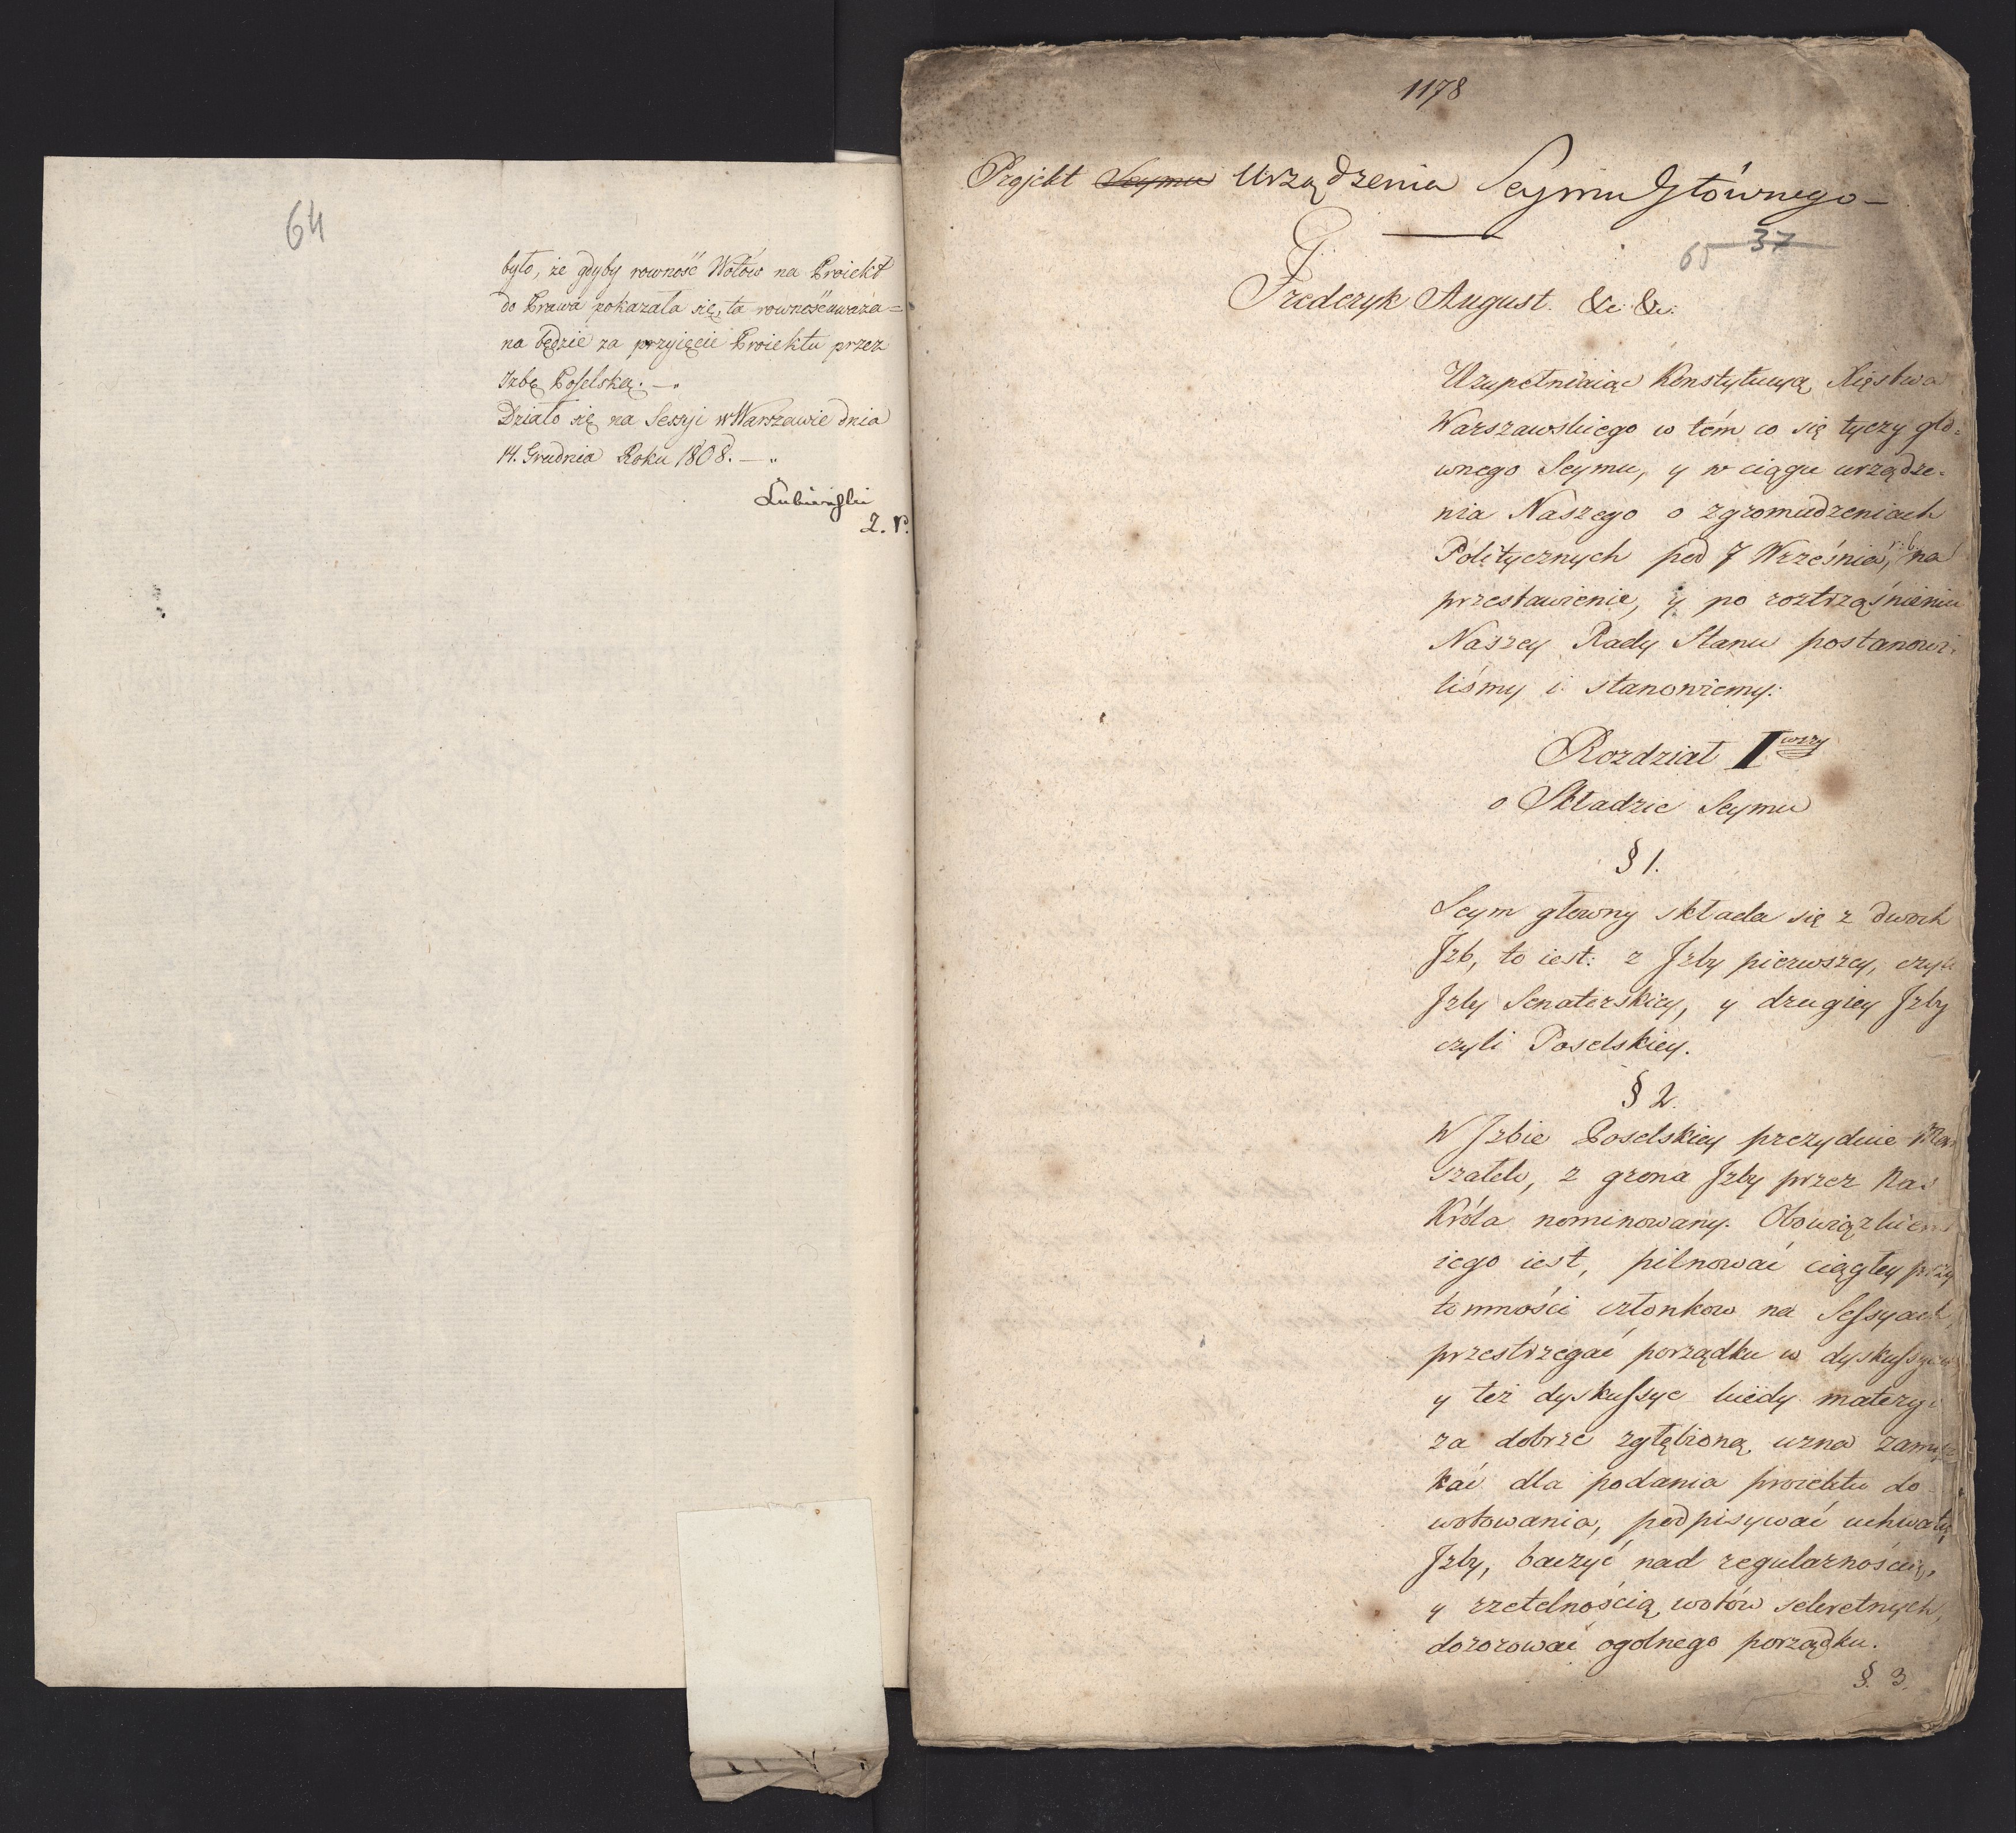 64
było, że gdyby rowność Wotów na Proiekt
do Prawa pokazała się, ta rowność uważa=
na będzie za przyięcie Proiektu przez
Izbę Poselską. —
Działo się na Sessyi w Warszawie dnia
14. Grudnia Roku 1808. —
Łubieński
1178
Projekt Seymu Urządzenia Seymu Głównego —
65 37
Frederyk August. &c: &c:
Uzupełniaiąc Konstytucyą Xięstwa
Warszawskiego w tém co się tyczy głó=
wnego Seymu, y w ciągu urządze=
nia Naszego o zgromadzeniach
Politycznych pod 7 Września, r. b. na
przestawienie, y po roztrząśnieniu
Naszey Rady Stanu postanowi=
liśmy i stanowiemy:
Rozdział I wszy
o Składzie Seymu
§ 1.
Seym głowny składa się z dwoch
Jzb, to iest: z Jzby pierwszey, czyli
Jzby Senatorskiey, y drugiey Jzby
czyli Poselskiey.
§ 2.
W Jzbie Poselskiey prezyduie Mar
szałek, z grona Jzby przez Nas
Króla nominowany. Obowiązkiem
iego iest, pilnować ciągłey przy
tomności członkow na Sessyach,
przestrzegać porządku w dyskussyach
y też dyskussye kiedy materyę
za dobrze zgłębioną uzna zamy
kać dla podania proiektu do
wotowania, podpisywać uchwały
Jzby, baczyć nad regularnością,
y rzetelnością wotów sekretnych,
dozorować ogolnego porządku.
§. 3.